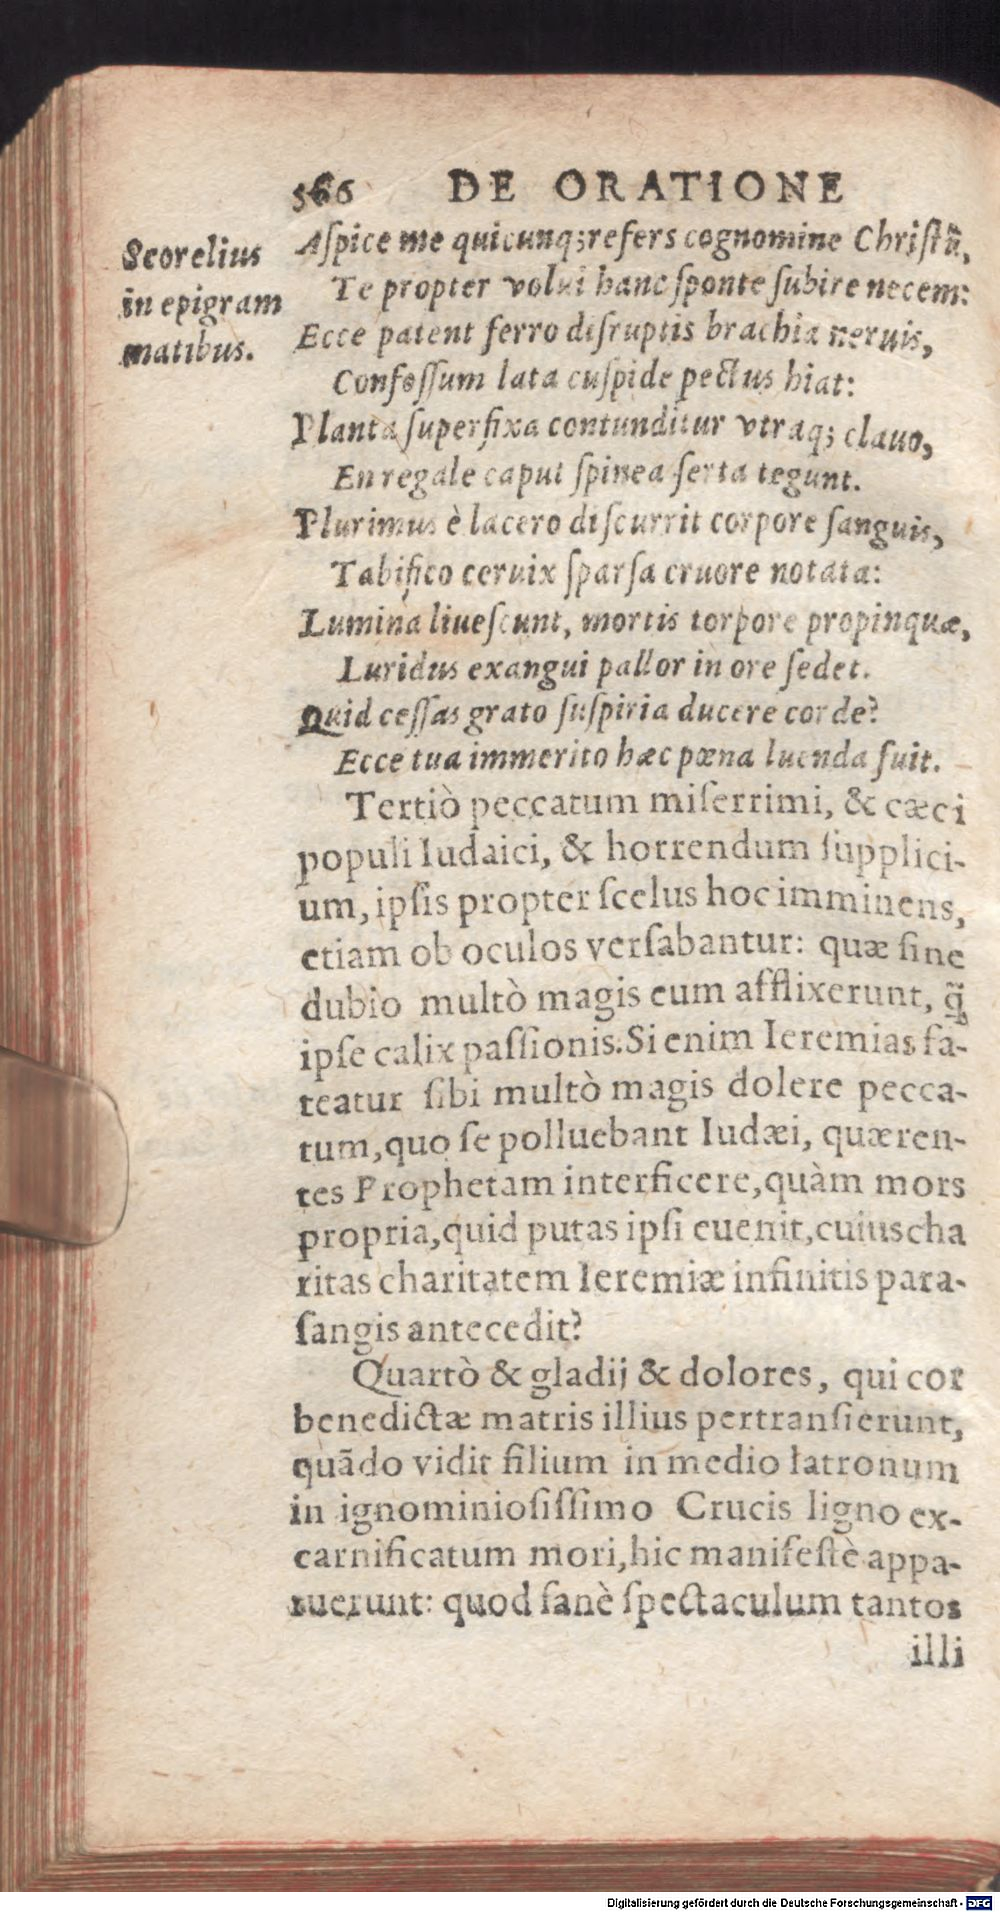 566 DE ORATIONE
Scorelius
in epigram
matibus.
Aſpice me quicunq;refers cognomine Chriſtũ,
Te propter volui hanc ſponte ſubire necem:
Ecce patent ferro diſruptis brachia neruis,
Confoſſum lata cuſpide pectus hiat:
Planta ſuperfixa contunditur vtraq; clauo,
En regale caput ſpinea ſerta tegunt.
Plurimus è lacero diſcurrit corpore ſanguis,
Tabifico ceruix ſparſa cruore notata:
Lumina liueſcunt, mortis torpore propinquæ,
Luridus exangui pallor in ore ſedet.
Quid ceſſas grato ſuſpiria ducere corde?
Ecce tua immerito hæc pœna luenda fuit.
Tertiò peccatum miſerrimi, & cæci
populi Iudaici, & horrendum ſupplici-
um, ipſis propter ſcelus hoc imminens,
etiam ob oculos verſabantur: quæ ſine
dubio multò magis eum afflixerunt, q̃
ipſe calix paſſionis. Si enim Ieremias fa-
teatur ſibi multò magis dolere pecca-
tum, quo ſe polluebant Iudæi, quæren-
tes Prophetam interficere, quàm mors
propria, quid putas ipſi euenit, cuius cha
ritas charitatem Ieremiæ infinitis para-
ſangis antecedit?
Quartò & gladij & dolores, qui cor
benedictæ matris illius pertranſierunt,
quãdo vidit filium in medio latronum
in ignominioſiſſimo Crucis ligno ex-
carnificatum mori, hic manifeſtè appa-
ruerunt: quod ſanè ſpectaculum tantos
illi
Digitalisierung gefördert durch die Deutsche Forschungsgemeinschaft - DFG